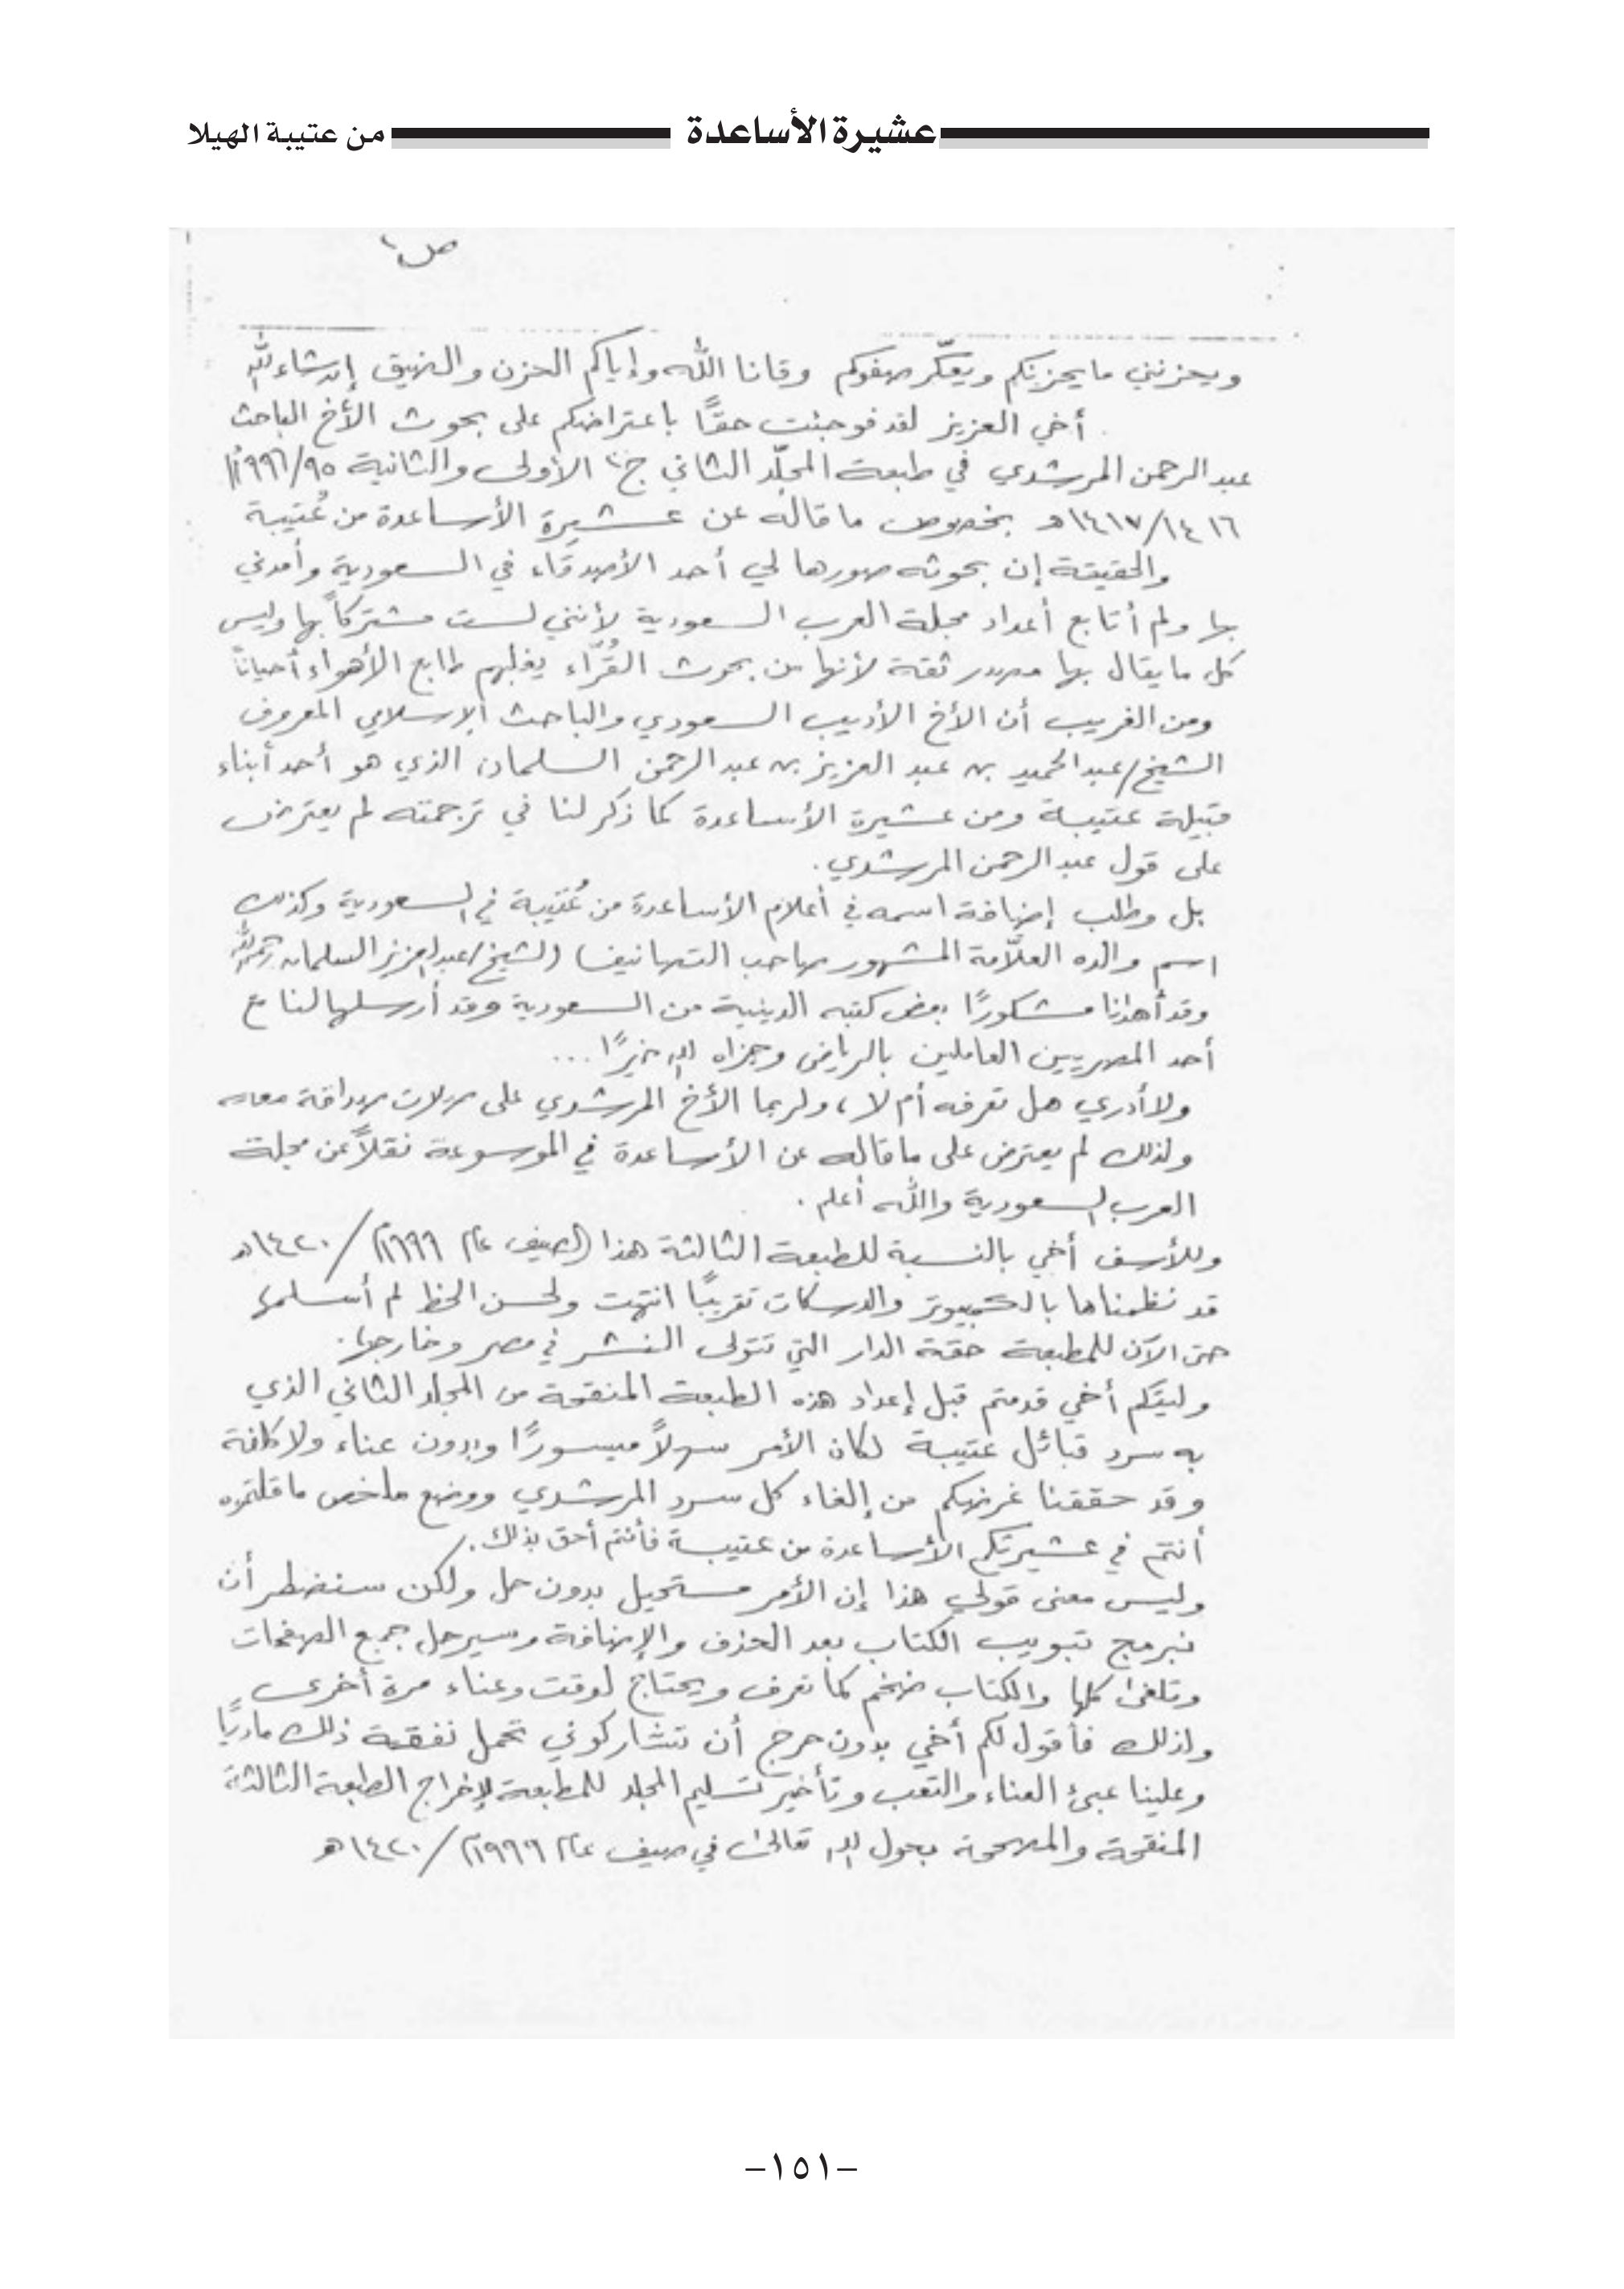 عشيرة الأساعدة
من عتيبة الهيلا
ويحزنني ما يحزنكم ويعكّر صفوكم وقانا الله وإياكم الحزن والضيق إن شاء الله
أخي العزيز لقد فوجئت حقًّا باعتراضكم على بحوث الأخ الباحث
عبد الرحمن المرشدي في طبعة المجلّد الثاني الأولى والثانية ٩٥/١٩٩٦م
١٤١٦/١٤١٧هـ بخصوص ما قاله عن عشيرة الأساعدة من عُتيبة
والحقيقة إن بحوثه صورها لي أحد الأصدقاء في السعودية وأمدني
بها ولم أتابع أعداد مجلة العرب السعودية لأنني لست مشتركاً بها وليس
كل ما يقال بها مصدر ثقة لأنها من بحوث القُرّاء يغلبهم طابع الأهواء أحياناً
ومن الغريب أن الأخ الأديب السعودي والباحث الإسلامي المعروف
الشيخ/عبد الحميد بن عبد العزيز بن عبد الرحمن السلمان الذي هو أحد أبناء
قبيلة عتيبة ومن عشيرة الأساعدة كما ذكر لنا في ترجمته لم يعترض
على قول عبد الرحمن المرشدي.
بل وطلب إضافة اسمه في أعلام الأساعدة من عُتيبة في السعودية وكذلك
اسم والده العلّامة المشهور صاحب التصانيف (الشيخ/عبد العزيز السلمان رحمه الله
وقد أهدانا مشكورًا بعض كتبه الدينية من السعودية وقد أرسلها لنا مع
أحد المصريين العاملين بالرياض وجزاه الله خيرًا...
ولا أدري هل تعرفه أم لا، ولربما الأخ المرشدي على صلات صداقة معه
ولذلك لم يعترض على ما قاله عن الأساعدة في الموسوعة نقلاً عن مجلة
العرب السعودية والله أعلم.
وللأسف أخي بالنسبة للطبعة الثالثة هذا الصيف عام ١٩٩٩م/١٤٢٠هـ
قد نظمناها بالكمبيوتر والدسكات تقريبًا انتهت ولحسن الحظ لم أسلمها
حتى الآن للمطبعة حقة الدار التي تتولى النشر في مصر وخارجها.
وليتكم أخي قدمتم قبل إعداد هذه الطبعة المنقحة من المجلد الثاني الذي
به سرد قبائل عتيبة لكان الأمر سهلاً ميسورًا وبدون عناء ولا كلفة
وقد حققنا غرضكم من إلغاء كل سرد المرشدي ووضع ملخص ما قلتموه
أنتم في عشيرتكم الأساعدة من عتيبة فأنتم أحق بذلك.
وليس معنى قولي هذا إن الأمر مستحيل بدون حل ولكن سنضطر أن
نبرمج تبويب الكتاب بعد الحذف والإضافة وسيرحل جميع الصفحات
وتلغى كلها والكتاب ضخم كما تعرف ويحتاج لوقت وعناء مرة أخرى
ولذلك فأقول لكم أخي بدون حرج أن تشاركوني تحمل نفقة ذلك ماديًا
وعلينا عبئ العناء والتعب وتأخير تسليم المجلد للمطبعة لإخراج الطبعة الثالثة
المنقحة والمصححة بحول الله تعالى في صيف عام ١٩٩٩م/١٤٢٠هـ
-١٥١-